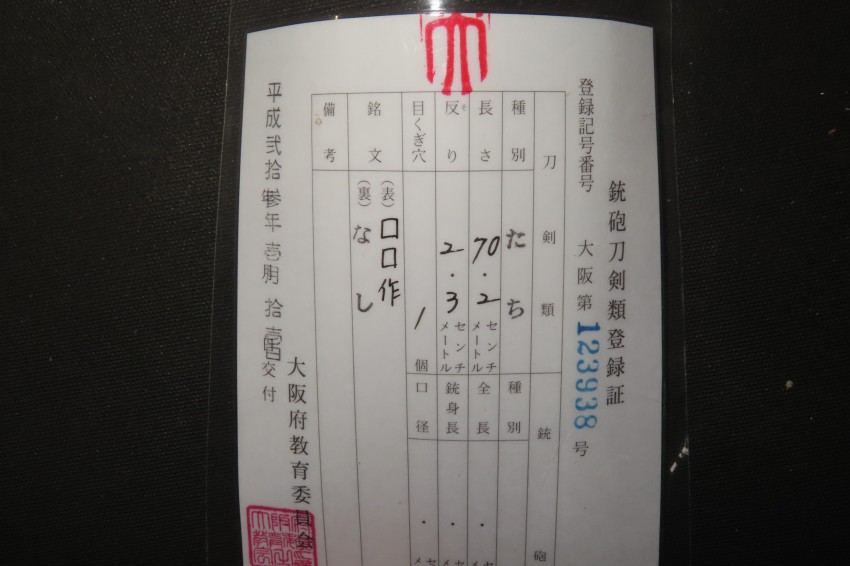 銃砲刀剣類登録証
登録記号番号 大阪第123938号
刀剣類
種別 たち
長さ 70.2 センチメートル
反り そ 2.3 センチメートル
目くぎ穴 1個
銘文 (表) 口口作
(裏) なし
備考
銃砲
種別
全長 . セ メ
銃身長 . セ メ
口径 . セ メ
平成弐拾参年壱月拾壱日交付
大阪府教育委員会